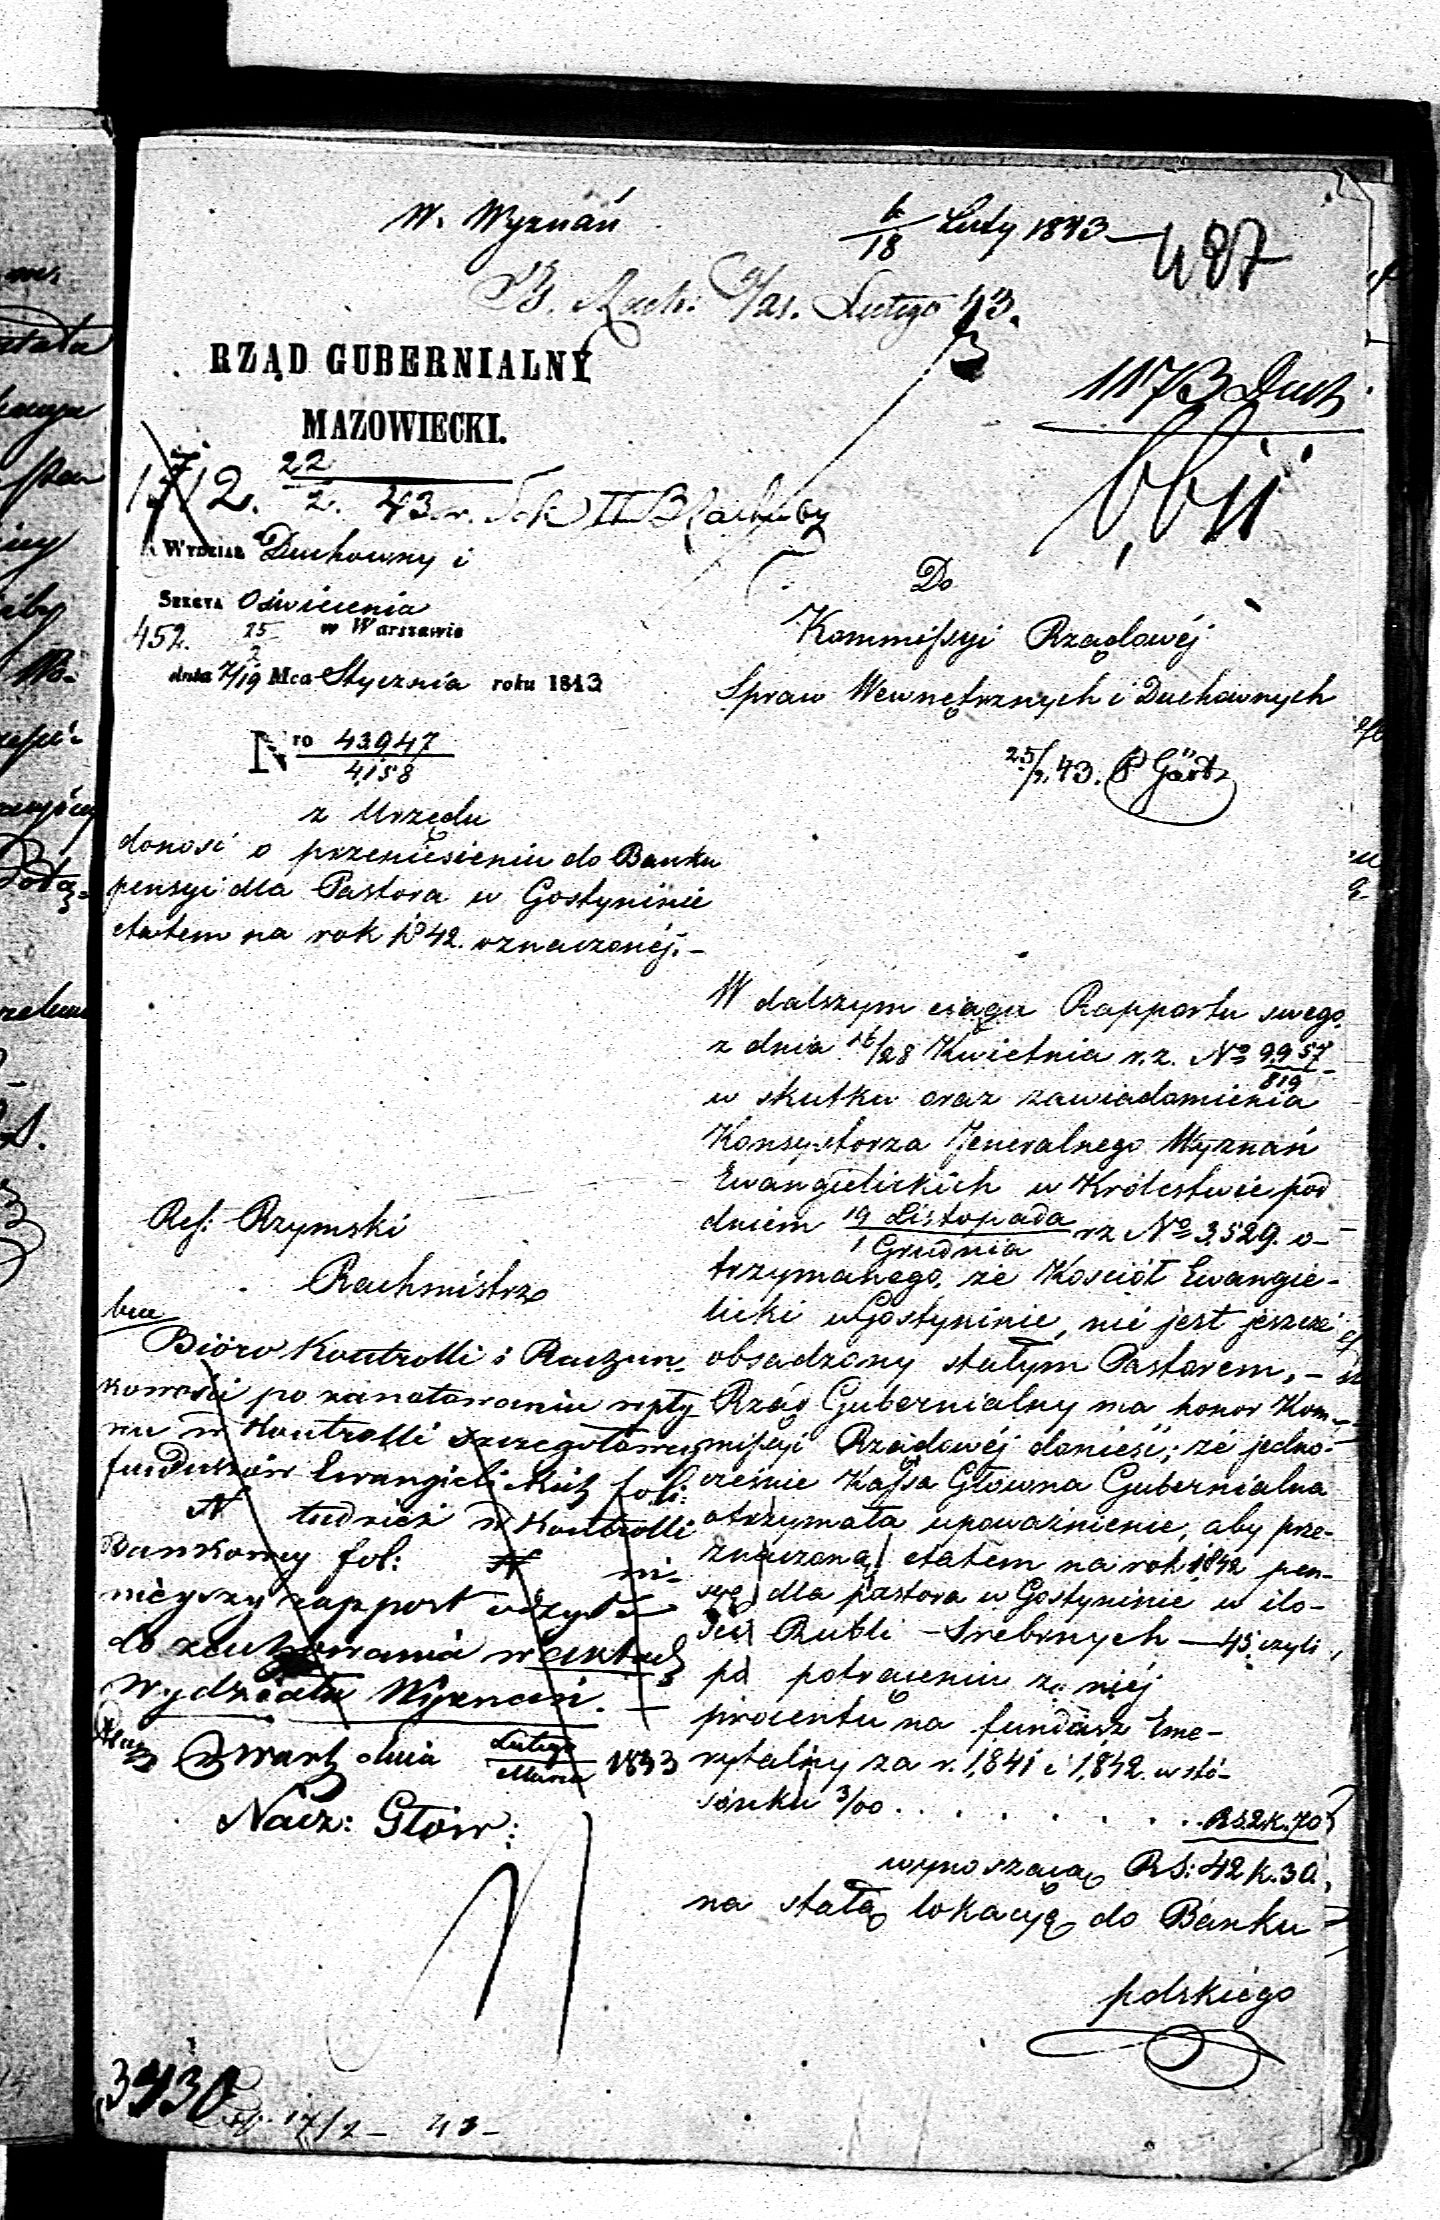 W. Wyznań
6/18 Luty 1843
487
B. Rach: 9/21. Lutego 43.
RZĄD GUBERNIALNY
MAZOWIECKI.
1173 Duch
1712. 22/2. 43 r. Sek II B
WYDZIAŁ Duchowny i
SEKCYA Oświecenia
452. 25/2 w Warszawie
dnia 7/19 Mca Stycznia roku 1843
Nro 43947/4158
z Urzędu
donosi o przeniesieniu do Banku
pensyi dla Pastora w Gostyninie
etatem na rok 1842. oznaczonéj. –
Do
Kommissyi Rządowéj
Spraw Wewnętrznych i Duchownych
25/2. 43. Gärtz
W dalszym ciągu Rapportu swego
z dnia 16/28 Kwietnia r. z. No 9957/819
w skutku oraz zawiadomienia
Konsystorza Jeneralnego Wyznań
Ewangielickich w Królestwie pod
dniem 19 Listopada/1 Grudnia rz No 3,529. o-
trzymanego, że Kościół Ewangie-
licki w Gostyninie, nie jest jeszcze
obsadzony stałym Pastorem, –
Rząd Gubernialny ma honor Kom-
missyi Rządowéj donieść; że jedno-
cześnie Kassa Główna Gubernialna
otrzymała upoważnienie, aby prze-
znaczoną etatem na rok 1842 pen-
syę dla pastora w Gostyninie w ilo-
ści Rubli Srebrnych – 45, czyli
po potrąceniu z niéj
procentu na fundusz Eme-
rytalny za r. 1,841 i 1,842. w stó-
sunku 3/00 . . . . . . . . RS. 2 k. 70
wynoszącą RS: 42 k. 30
na stałą lokacyę do Banku
polskiego
Ref: Rzymski
Rachmistrz
Bióro Kontrolli i Rachun-
kowości po zanotowaniu wpły-
wu w Kontrolli szczegółowey
funduszów Ewangielickich foli:
N tudzież w Kontrolli
Bankowey fol: N ni-
nieyszy rapport odsyła
do zachowania w aktach
Wydziału Wyznań. –
w Warsz dnia Lutego/Marca 1843
Nacz: Głów:
3430
17/2 – 43 –